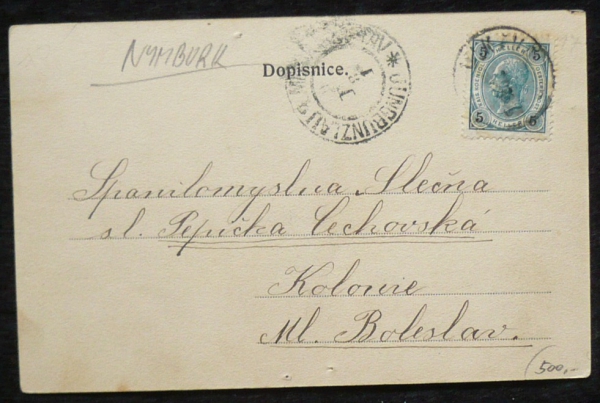 NYMBURK
Dopisnice.
JUNGBUNZLAU
5 5
5 5
Spanilomyslná Slečna
sl. Pepička Čechovská
Kolonie
Ml. Boleslav.
500,-